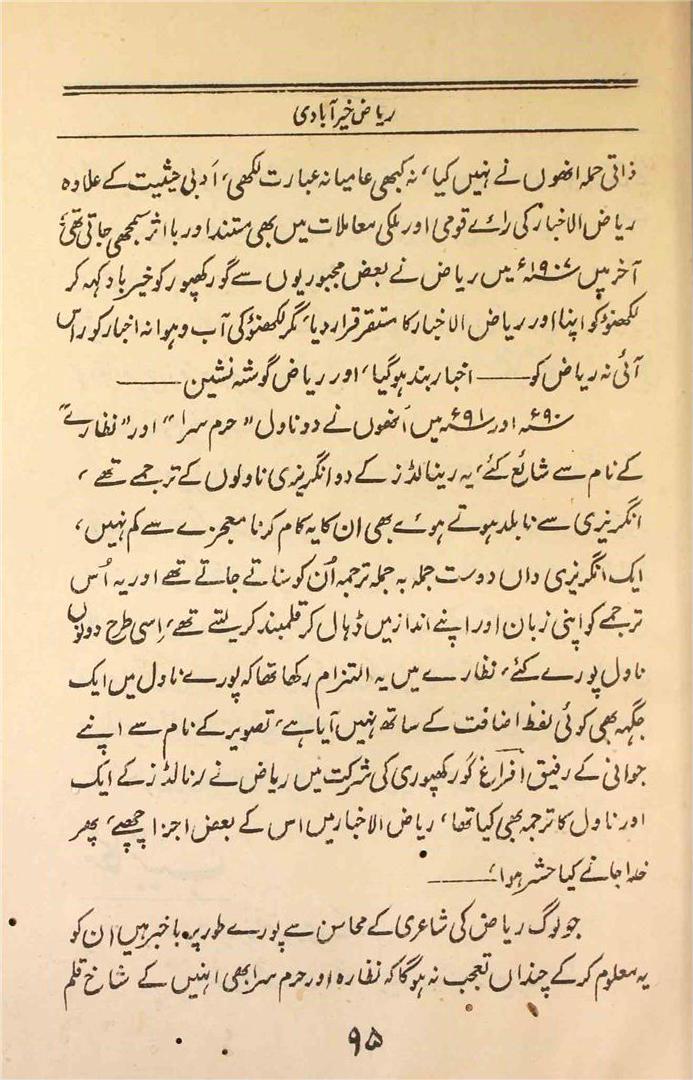 ریاض خیرآبادی
ذاتی حملہ انھوں نے نہیں کیا، نہ کبھی عامیانہ عبارت لکھی، اَدبی حیثیت کے علاوہ
ریاض الاخبار کی رائے قومی اور ملکی معاملات میں بھی مستند اور با اثر سمجھی جاتی تھی
آخر میں ۱۹۰۷ء میں ریاض نے بعض مجبوریوں سے گورکھپور کو خیرباد کہہ کر
لکھنؤ کو اپنا اور ریاض الاخبار کا مستقر قرار دیا، مگر لکھنؤ کی آب و ہوا نہ اخبار کو راس
آئی نہ ریاض کو —— اخبار بند ہوگیا، اور ریاض گوشہ نشین ——
۹۰ء اور ۹۱ء میں اُنھوں نے دو ناول "حرم سرا" اور "نظارے"
کے نام سے شائع کئے، یہ رینالڈز کے دو انگریزی ناولوں کے ترجمے تھے،
انگریزی سے نابلد ہوتے ہوئے بھی ان کا یہ کام کرنا معجزے سے کم نہیں،
ایک انگریزی داں دوست جملہ بہ جملہ ترجمہ اُن کو سناتے جاتے تھے اور یہ اُس
ترجمے کو اپنی زبان اور اپنے انداز میں ڈہال کر قلمبند کر لیتے تھے، اِسی طرح دونوں
ناول پورے کئے، نظارے میں یہ التزام رکھا تھا کہ پورے ناول میں ایک
جگہہ بھی کوئی لفظ اضافت کے ساتھ نہیں آیا ہے، تصویر کے نام سے اپنے
جوانی کے رفیق افراغ گورکھپوری کی شرکت میں ریاض نے رنالڈز کے ایک
اور ناول کا ترجمہ بھی کیا تھا، ریاض الاخبار میں اس کے بعض اجزا چھپے، پھر
خدا جانے کیا حشر ہوا، ——
جو لوگ ریاض کی شاعری کے محاسن سے پورے طور پر باخبر ہیں ان کو
یہ معلوم کرکے چنداں تعجب نہ ہوگا کہ نظارہ اور حرم سرا بھی انہیں کے شاخ قلم
۹۵